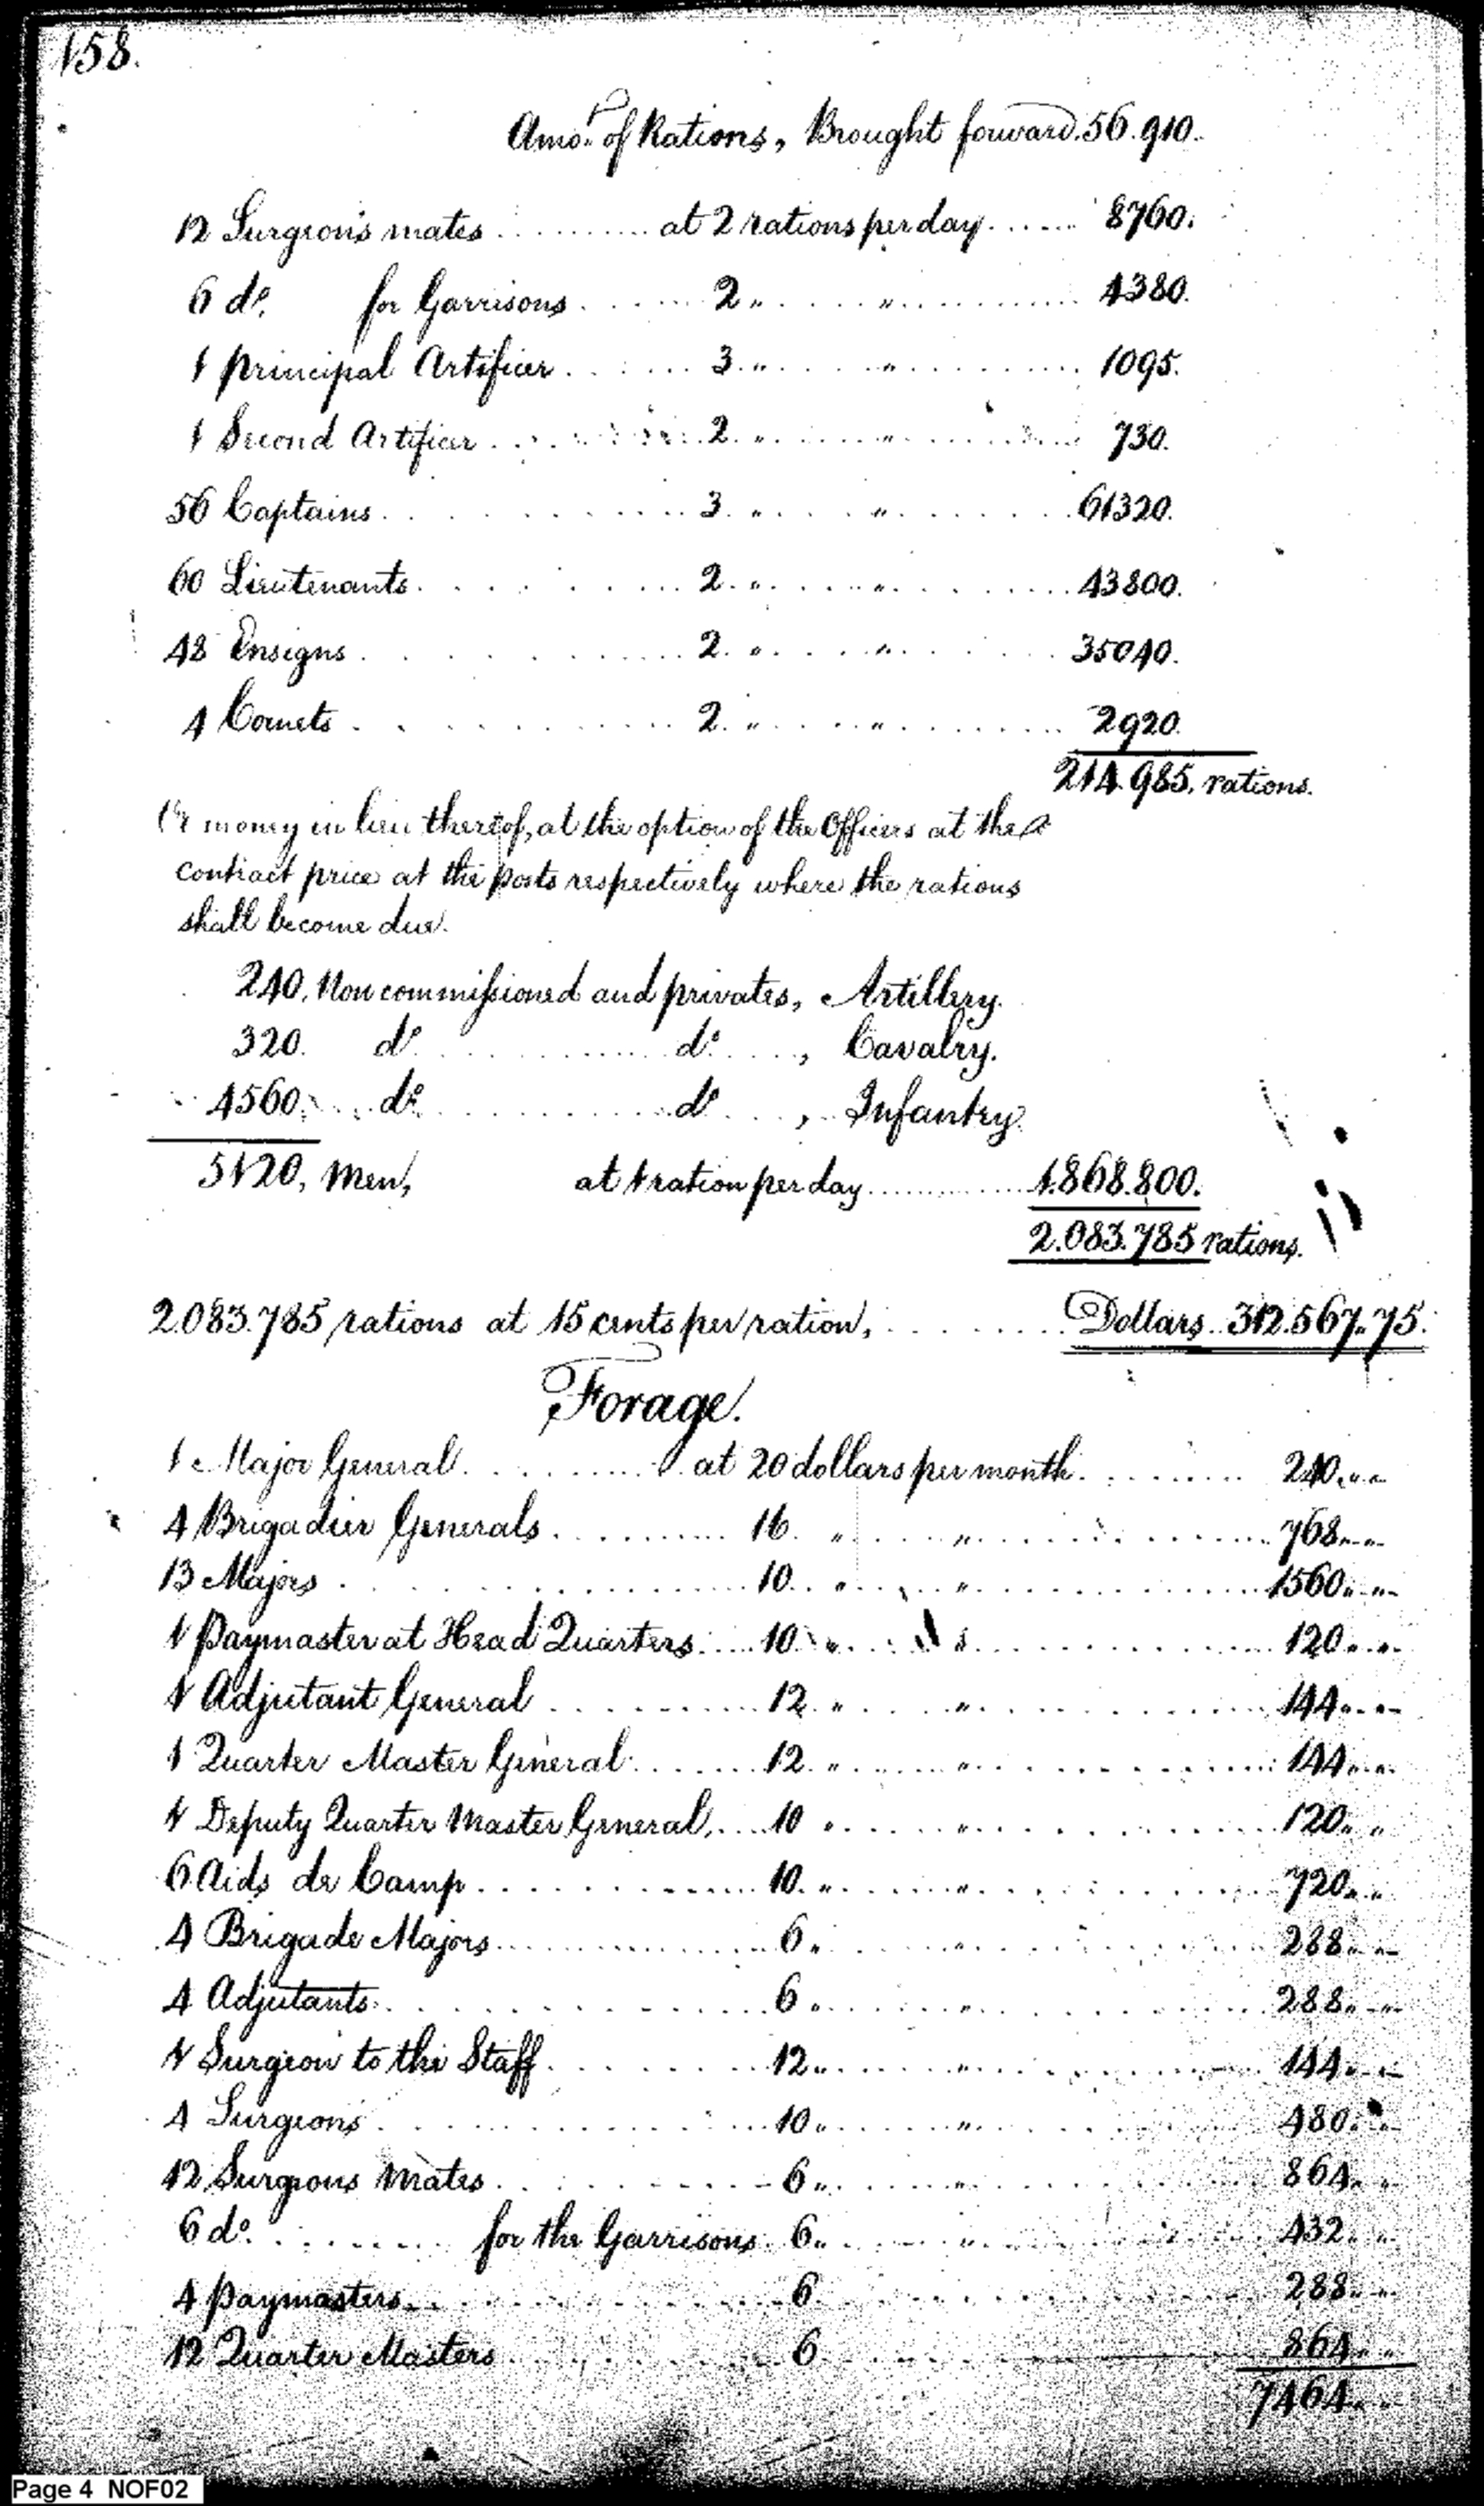 158.
Amo.t of Rations, Brought forward. 56.910.
12 Surgeon's mates .......... at 2 rations per day. ...... 8760.
6 do. for Garrisons. ...... 2 " ..... " .......... 4380.
1 principal Artificer ....... 3. " ..... " .......... 1095.
1 Second Artificer .......... 2. " ..... " .......... 730.
56 Captains .......... 3. " .... " ....... 61320.
60 Lieutenants .......... 2. " .... " ....... 43800.
48 Ensigns .......... 2. " .... " ....... 35040.
4 Cornets .......... 2. " .... " ....... 2920.
214.985. rations.
Or money in lieu thereof, at the option of the Officers at the
contract price at the posts respectively where the rations
shall become due.
240. Non commissioned and privates, Artillery.
320. do. .......... do. ...., Cavalry.
4560. .... do. .......... do ...., Infantry.
5120, Men, at 1 ration per day .......... 1.868.800.
2.083.785 rations.
2.083.785 rations at 15 cents per ration, ........ Dollars .. 312.567.75.
Forage.
1 Major General .......... at 20 dollars per month. ........ 240. " "
4 Brigadier Generals .......... 16. " .... " .......... 768 " "
13 Majors .......... 10. " .... " .......... 1560 " "
1 Paymaster at Head Quarters .... 10 " .... " .......... 120 " "
1 Adjutant General .......... 12. " .... " .......... 144 " "
1 Quarter Master General ....... 12. " .... " .......... 144 " "
1 Deputy Quarter Master General, .... 10 " .... " .......... 120 " "
6 Aids de Camp .......... 10. " .... " .......... 720 " "
4 Brigade Majors .......... 6 " .... " .......... 288 " "
4 Adjutants .......... 6 " .... " .......... 288 " "
1 Surgeon to the Staff .......... 12 " .... " .......... 144 " "
4 Surgeons .......... 10 " .... " .......... 480 " "
12 Surgeons Mates .......... 6 " .... " .......... 864 " "
6 do. .......... for the Garrisons 6 " .... " .......... 432 " "
4 Paymasters .......... 6 .......... 288 " "
12 Quarter Masters .......... 6 .......... 864 " "
7464 " "
Page 4 NOF02